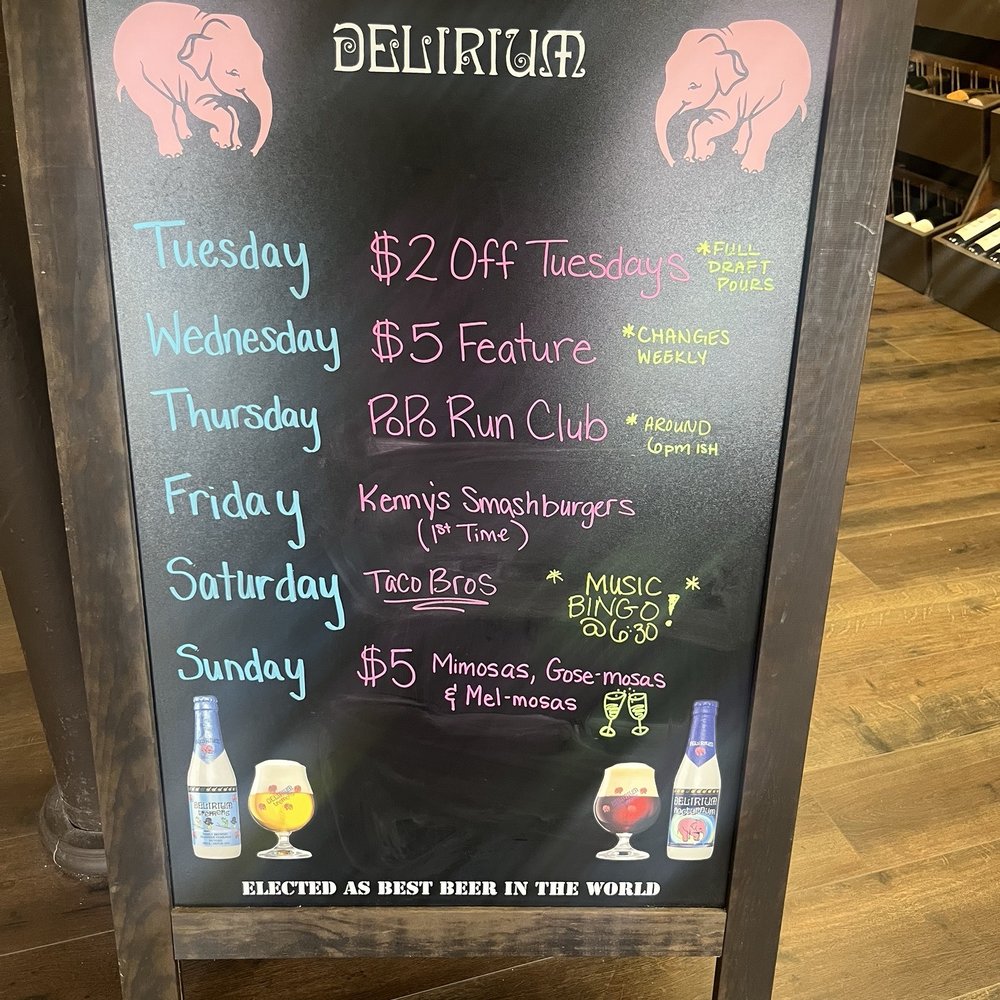 DELIRIUM
Tuesday $2 Off Tuesdays *FULL
DRAFT
POURS
Wednesday $5 Feature *CHANGES
WEEKLY
Thursday PoPo Run Club * AROUND
6pm ISH
Friday Kenny's Smashburgers
(1st Time)
Saturday Taco Bros * MUSIC *
BINGO!
@ 6:30
Sunday $5 Mimosas, Gose-mosas
& Mel-mosas
DELIRIUM
TREMENS
DELIRIUM
DELIRIUM
DELIRIUM
NOCTURNUM
ELECTED AS BEST BEER IN THE WORLD